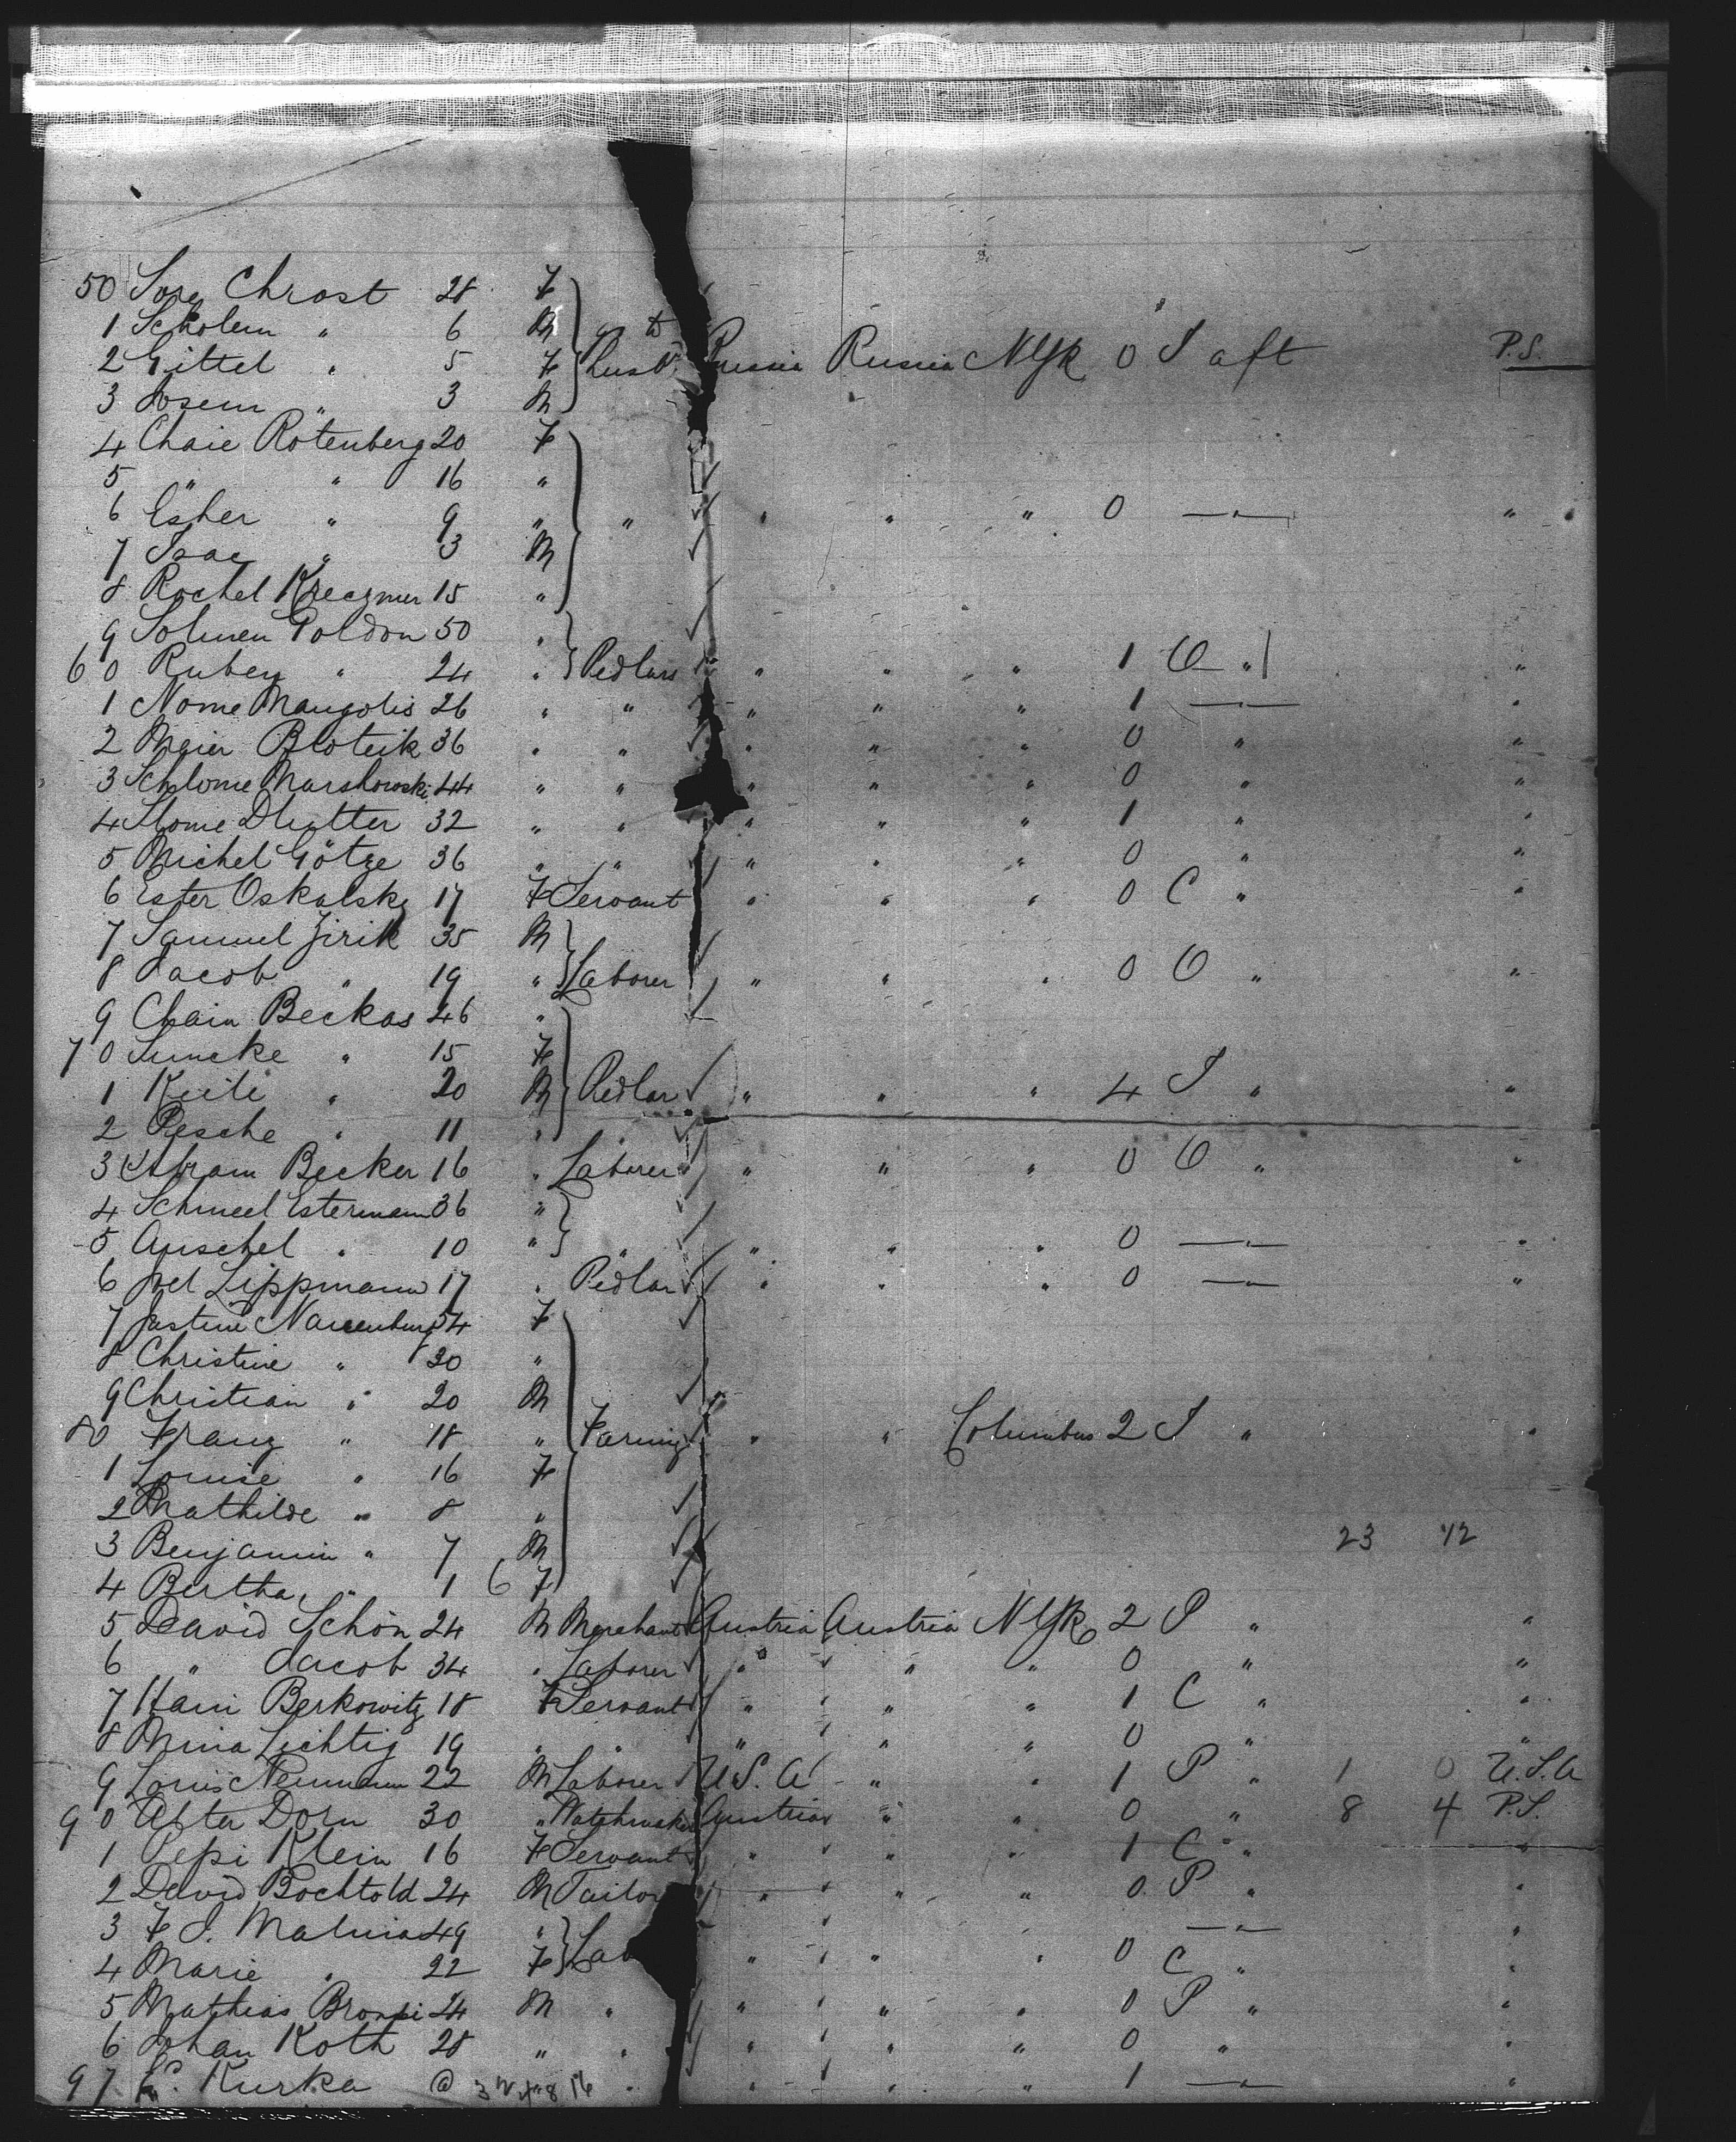 50 Sore Chrost 28 F
1 Scholem " 6 M to
2 Gittel " 5 F husb. Russia Russia NYk 0 S aft P.S.
3 " 3 M
4 Chaie Rotenberg 20 F
5 " " 16 "
6 Esther " 9 " " " " " 0 —"— "
7 Isac " 3 M
8 Rochel Kreczmer 15 "
9 Solmen Goldon 50 "
60 Ruben " 24 " Pedlars " " " 1 O " "
1 Nome Mangolis 26 " " " " " 1 —"— "
2 Meier Bloteik 36 " " " " " 0 " "
3 Schlome Marshowski 44 " " " " " 0 " "
4 Slome Dlutter 32 " " " " " 1 " "
5 Michel Götze 36 " " " " " 0 " "
6 Ester Oskalsky 17 F Servant " " " 0 C " "
7 Samuel Jirik 35 M
8 Jacob " 19 " Laborer " " " 0 O " "
9 Chain Beckas 46 "
70 Suncke " 15 F
1 " 20 M Pedlar " " " 4 S " "
2 Pesche " 11 "
3 Abram Becker 16 " Laborer " " " 0 O " "
4 Schmeel Estermann 36 "
5 Anschel " 10 " " " " " 0 —"— "
6 Joel Lippmann 17 " Pedlar " " " 0 —"— "
7 Justine 54 F
8 Christine " 30 "
9 Christian " 20 M
80 Franz " 18 " Farming " " Columbus 2 S " "
1 Louise " 16 F
2 Mathilde " 8 "
3 Benjamin " 7 M 23 12
4 Bertha " 1 6 F
5 David Schön 24 M Merchant Austria Austria NYk 2 S " "
6 " Jacob 34 " Laborer " " " 0 " "
7 Hani Berkowitz 18 F Servant " " " 1 C " "
8 Mina Lichtig 19 " " " " " 0 " "
9 Louis Neumann 22 M Laborer U.S.A " " 1 P " 1 0 U.S.A
90 Alter Dorn 30 " Watchmaker Austria " " 0 " 8 4 P.S.
1 Pepi Klein 16 F Servant " " " 1 C " "
2 David Bochtold 24 M Tailor " " " 0 P " "
3 F. J. 49 " —"— "
4 Marie " 22 F Lab " " " 0 C " "
5 Mathias 24 M " " " " 0 P " "
6 Johan Koth 28 " " " " " 0 " "
97 Kurka " " " " 1 —"— "